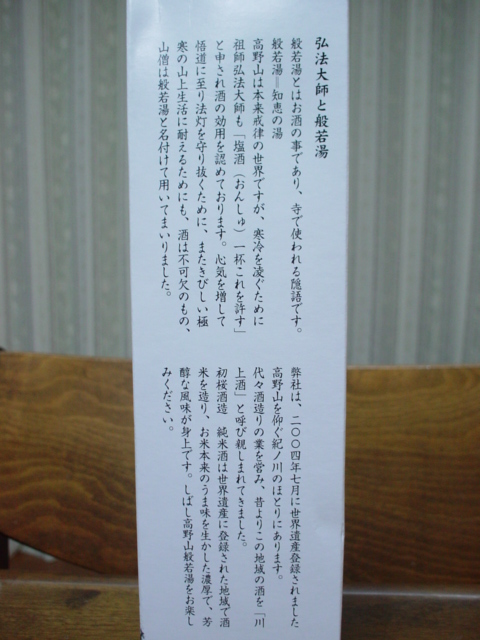 弘法大師と般若湯
般若湯とはお酒の事であり、寺で使われる隠語です。
般若湯＝知恵の湯
高野山は本来戒律の世界ですが、寒冷を凌ぐために
祖師弘法大師も「塩酒（おんしゅ）一杯これを許す」
と申され酒の効用を認めております。心気を増して
悟道に至り法灯を守り抜くために、またきびしい極
寒の山上生活に耐えるためにも、酒は不可欠のもの、
山僧は般若湯と名付けて用いてまいりました。
弊社は、二〇〇四年七月に世界遺産登録されました
高野山を仰ぐ紀ノ川のほとりにあります。
代々酒造りの業を営み、昔よりこの地域の酒を「川
上酒」と呼び親しまれてきました。
初桜酒造 純米酒は世界遺産に登録された地域で酒
米を造り、お米本来のうま味を生かした濃厚で、芳
醇な風味が身上です。しばし高野山般若湯をお楽し
みください。